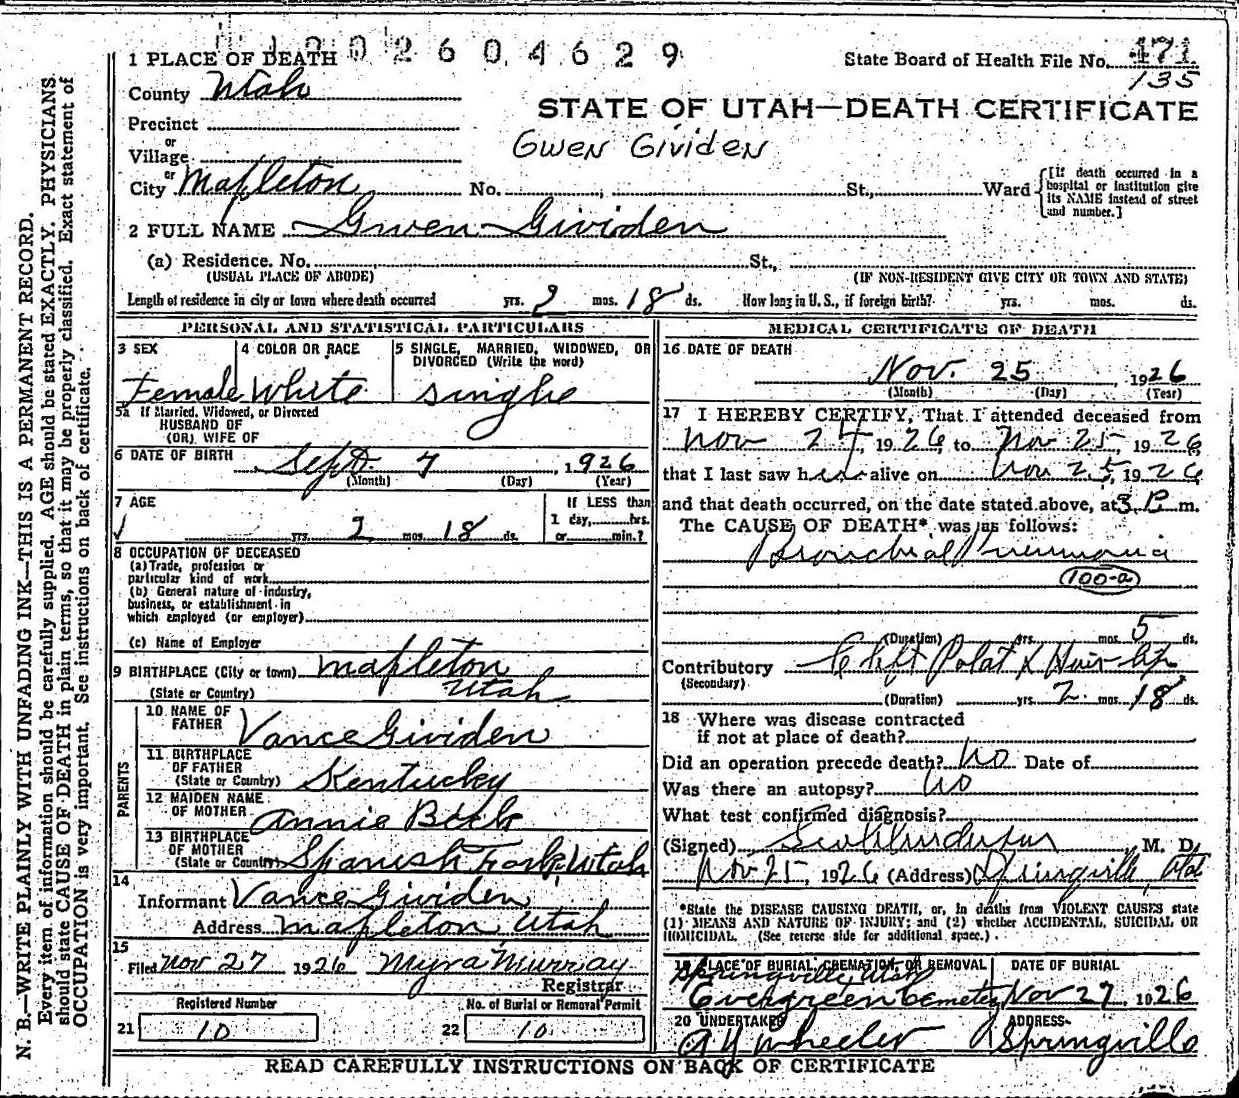 1002604629
1 PLACE OF DEATH
State Board of Health File No. 471
135
County Utah
STATE OF UTAH—DEATH CERTIFICATE
Precinct
or
Village
Gwen Gividen
or
City Mapleton No. St., Ward
[If death occurred in a hospital or institution give its NAME instead of street and number.]
2 FULL NAME Gwen Gividen
(a) Residence. No. St.,
(USUAL PLACE OF ABODE) (IF NON-RESIDENT GIVE CITY OR TOWN AND STATE)
Length of residence in city or town where death occurred yrs. 2 mos. 18 ds. How long in U. S., if foreign birth? yrs. mos. ds.
PERSONAL AND STATISTICAL PARTICULARS
3 SEX
Female
4 COLOR OR RACE
White
5 SINGLE, MARRIED, WIDOWED, OR DIVORCED (Write the word)
Single
5a If Married, Widowed, or Divorced
HUSBAND OF
(OR) WIFE OF
6 DATE OF BIRTH Sept. 7, 1926
(Month) (Day) (Year)
7 AGE
yrs. 2 mos. 18 ds.
If LESS than
1 day, hrs.
or min.?
8 OCCUPATION OF DECEASED
(a) Trade, profession or
particular kind of work
(b) General nature of industry,
business, or establishment in
which employed (or employer)
(c) Name of Employer
9 BIRTHPLACE (City or town) Mapleton
(State or Country) Utah
PARENTS
10 NAME OF FATHER Vance Gividen
11 BIRTHPLACE OF FATHER
(State or Country) Kentucky
12 MAIDEN NAME OF MOTHER Annie
13 BIRTHPLACE OF MOTHER
(State or Country) Spanish Fork, Utah
14
Informant Vance Gividen
Address Mapleton Utah
15
Filed Nov 27 1926 Myra Murray
Registrar
Registered Number No. of Burial or Removal Permit
21 10 22 10
MEDICAL CERTIFICATE OF DEATH
16 DATE OF DEATH
Nov. 25, 1926
(Month) (Day) (Year)
17 I HEREBY CERTIFY, That I attended deceased from
Nov 24, 1926, to Nov 25, 1926,
that I last saw her alive on Nov 25, 1926
and that death occurred, on the date stated above, at 3 P. m.
The CAUSE OF DEATH* was as follows:
Bronchial Pneumonia
100-a
(Duration) yrs. mos. 5 ds.
Contributory Cleft Palat & Hair lip
(Secondary)
(Duration) yrs. 2 mos. 18 ds.
18 Where was disease contracted
if not at place of death?
Did an operation precede death? No Date of
Was there an autopsy? No
What test confirmed diagnosis?
(Signed) M. D.
Nov 25, 1926 (Address) Springville, Utah
*State the DISEASE CAUSING DEATH, or, in deaths from VIOLENT CAUSES state
(1) MEANS AND NATURE OF INJURY; and (2) whether ACCIDENTAL, SUICIDAL OR
HOMICIDAL. (See reverse side for additional space.)
19 PLACE OF BURIAL, CREMATION, OR REMOVAL
Springville, Utah
Evergreen Cemetery
DATE OF BURIAL
Nov 27, 1926
20 UNDERTAKER
A Y Wheeler
ADDRESS
Springville
READ CAREFULLY INSTRUCTIONS ON BACK OF CERTIFICATE
N. B.—WRITE PLAINLY WITH UNFADING INK—THIS IS A PERMANENT RECORD.
Every item of information should be carefully supplied. AGE should be stated EXACTLY. PHYSICIANS
should state CAUSE OF DEATH in plain terms, so that it may be properly classified. Exact statement of
OCCUPATION is very important. See instructions on back of certificate.